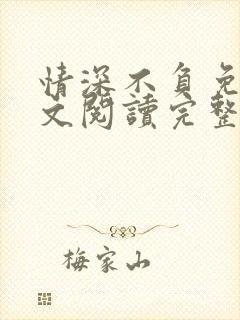 情深不負免
文閱讀完整
梅家山